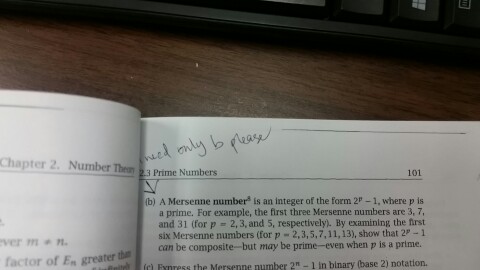 need only b please
Chapter 2. Number Theory
2.3 Prime Numbers 101
(b) A Mersenne number⁵ is an integer of the form 2ᵖ − 1, where p is
a prime. For example, the first three Mersenne numbers are 3, 7,
and 31 (for p = 2, 3, and 5, respectively). By examining the first
six Mersenne numbers (for p = 2, 3, 5, 7, 11, 13), show that 2ᵖ − 1
can be composite—but may be prime—even when p is a prime.
(c) Express the Mersenne number 2ⁿ − 1 in binary (base 2) notation.
ever m ≠ n.
factor of Eₙ greater than